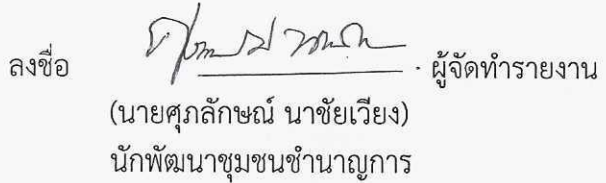 ลงชื่อ ผู้จัดทำรายงาน
(นายศุภลักษณ์ นาชัยเวียง)
นักพัฒนาชุมชนชำนาญการ